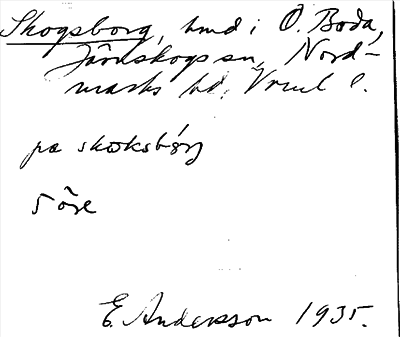 Skogsborg, hmd i Ö. Boda,
Järnskogs sn, Nord-
marks hd, Vrml l.
pa skoksbórj
5 öre
E. Andersson 1935.